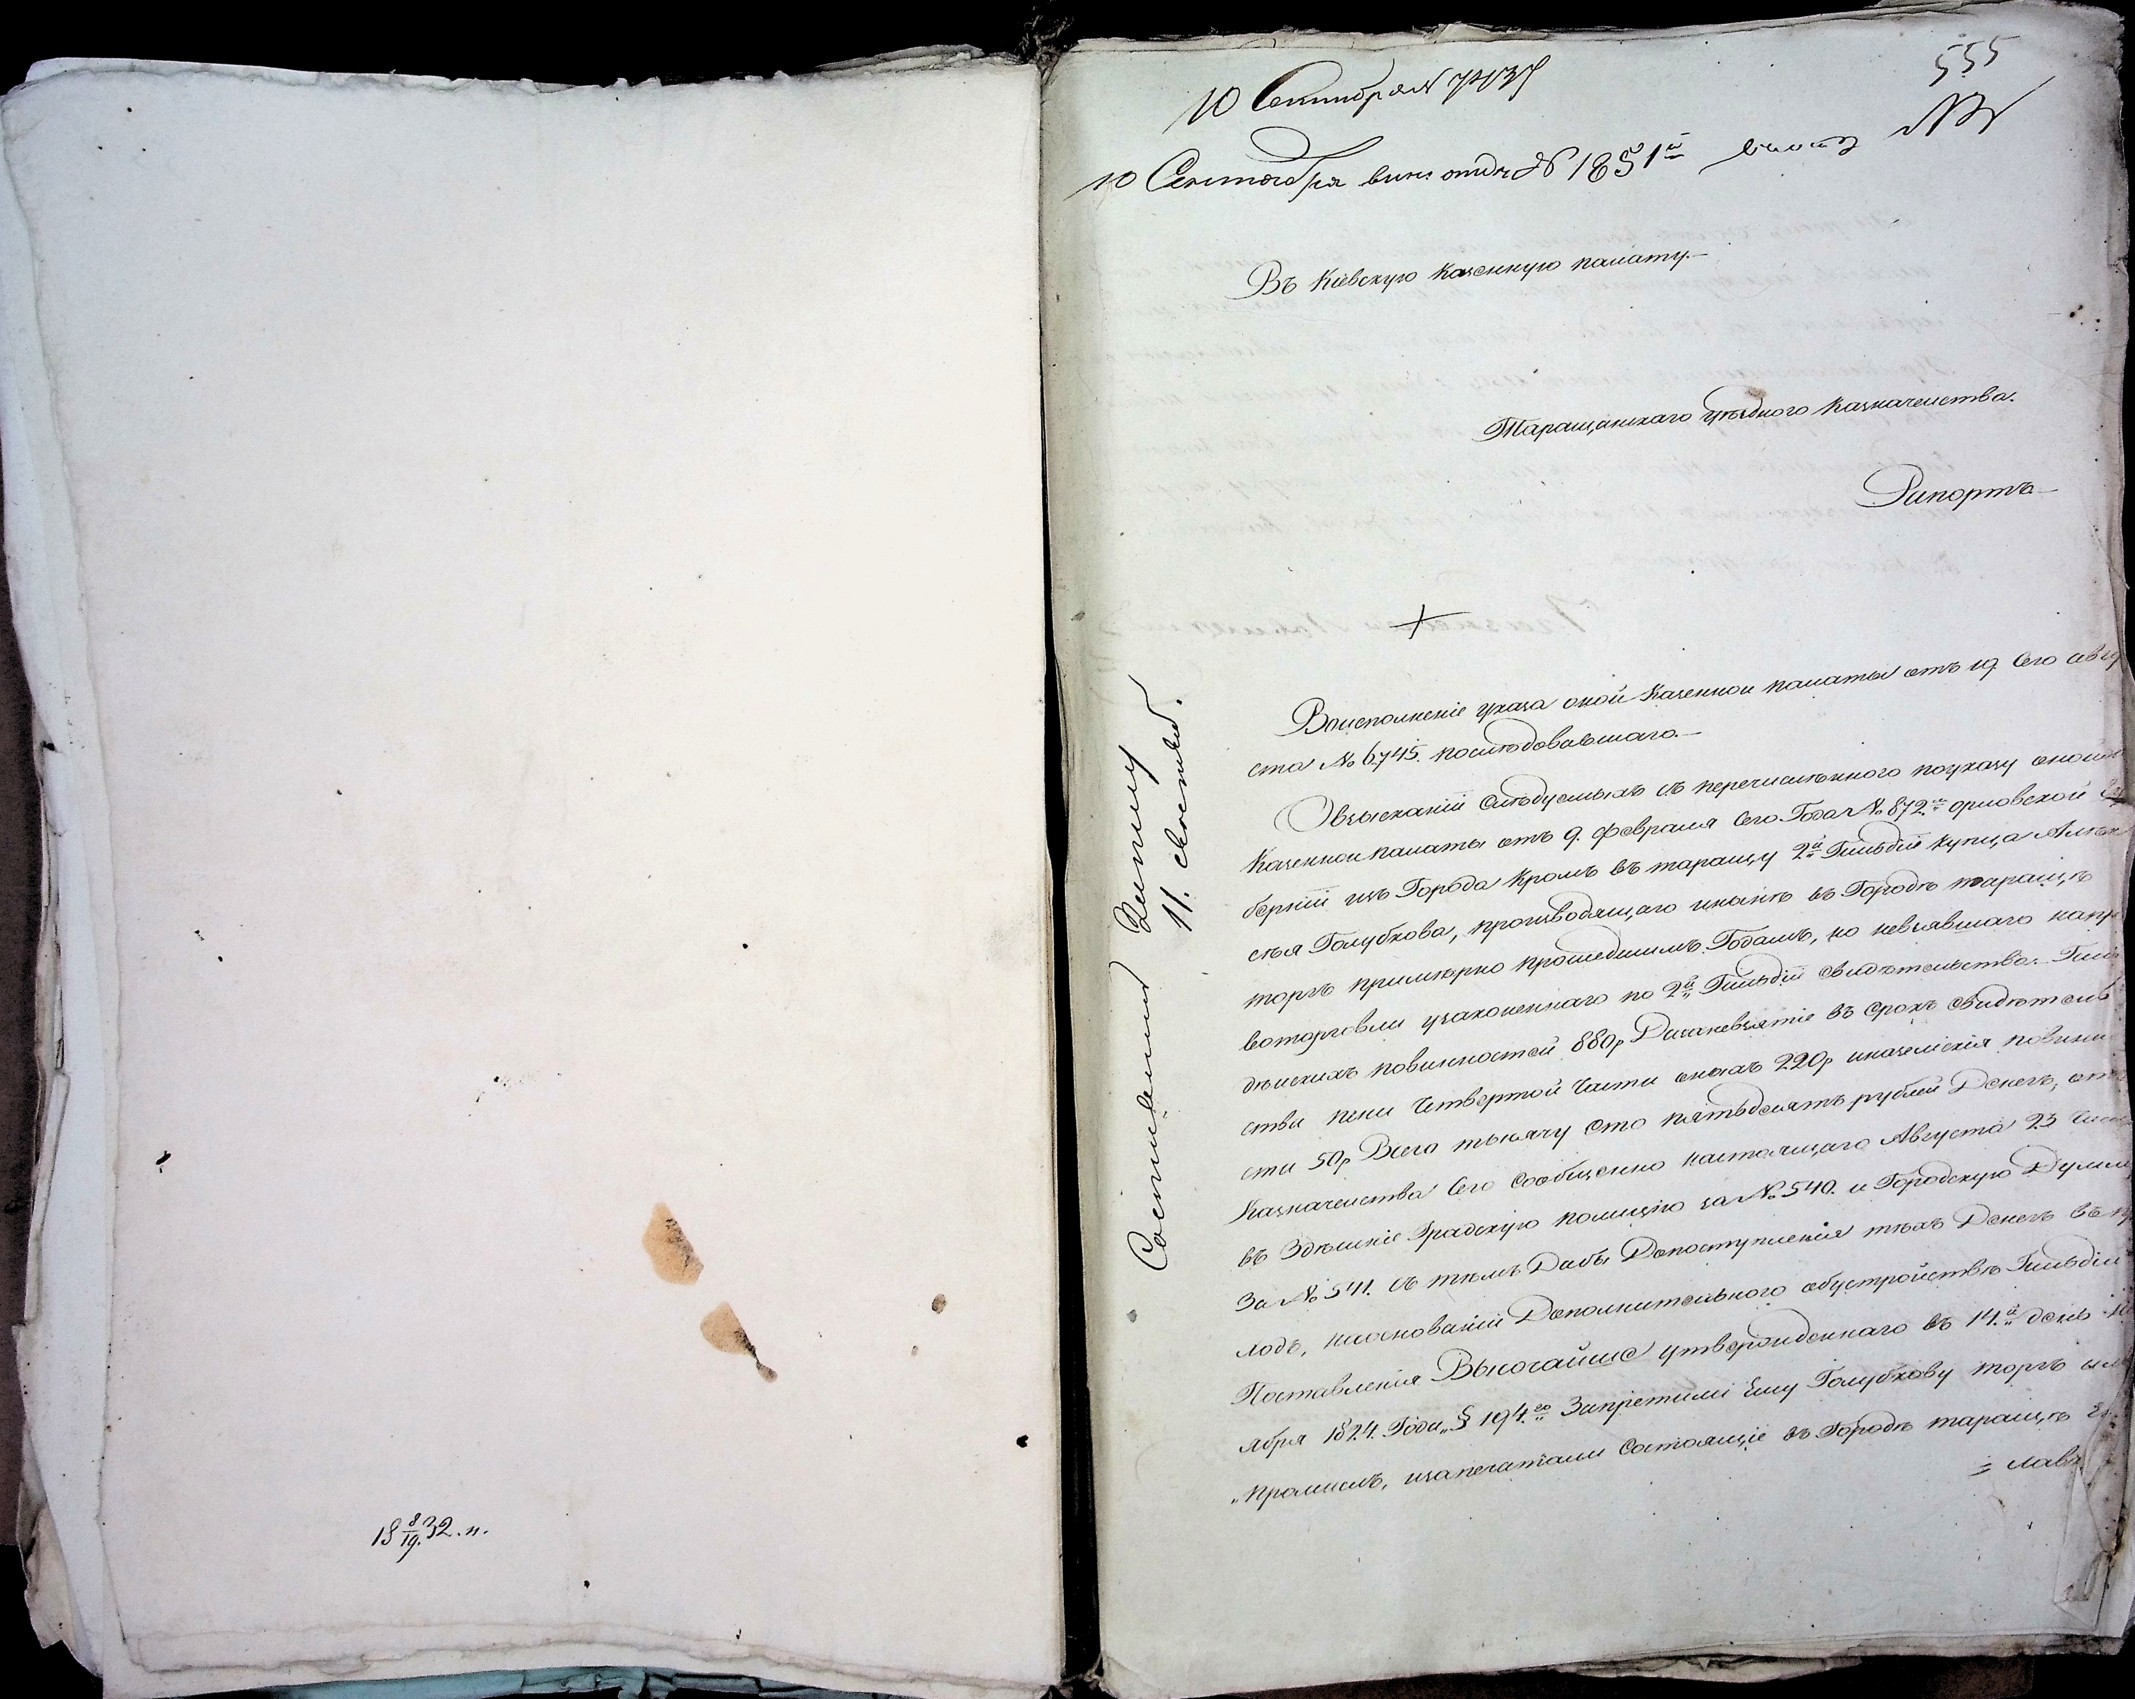 18 8/19. 32. н.
555
10 Сентября № 7437
10 Сентября № 1851й
Въ Кіевскую Казенную палату.—
Таращанскаго уѣзднаго Казначейства.
Рапортъ—
11.
Воисполненіе указа оной Казенной палаты отъ 19. Сего авгу
ста № 6745. послѣдовавшаго.—
Овзысканіи Слѣдуемыхъ съ перечисленного поуказу оной
Казенной палаты отъ 9. февраля Сего Года № 872.го орловской Гу
берніи изъ Города Кромъ въ таращу 2й Гильдіи купца Алек
сѣя Голубкова, производящаго инынѣ въ Городѣ таращѣ
торгъ примѣрно прошедшимъ Годамъ, но невзявшаго напра
воторговли узаконеннаго по 2й Гильдіи Свидѣтельства. Гиль
дѣйскихъ повинностей 880р Дизаневзятіе въ срокъ свидѣтель
ства пени четвертой части оныхъ 220р иназемскія повинно
сти 50р Всего тысячу сто пятьдесятъ рублей Денегъ, отъ
Казначейства Сего Сообщенно настоящаго Августа 23 числа
въ Здѣшніе Градскую полицію за № 540. и Городскую Думу
За № 541. съ тѣмъ Дабы Допоступленія тѣхъ Денегъ въ
лодъ, наоснованіи Дополнительного обустройствѣ Гильдіи
Поставленія Высочайше утвержденнаго въ 14.й день Но
ября 1824. Года „§ 194.го Запретили Ему Голубкову торгъ или
„промыслъ, изапечатали Состоящіе въ Городѣ таращѣ Его
= лавк